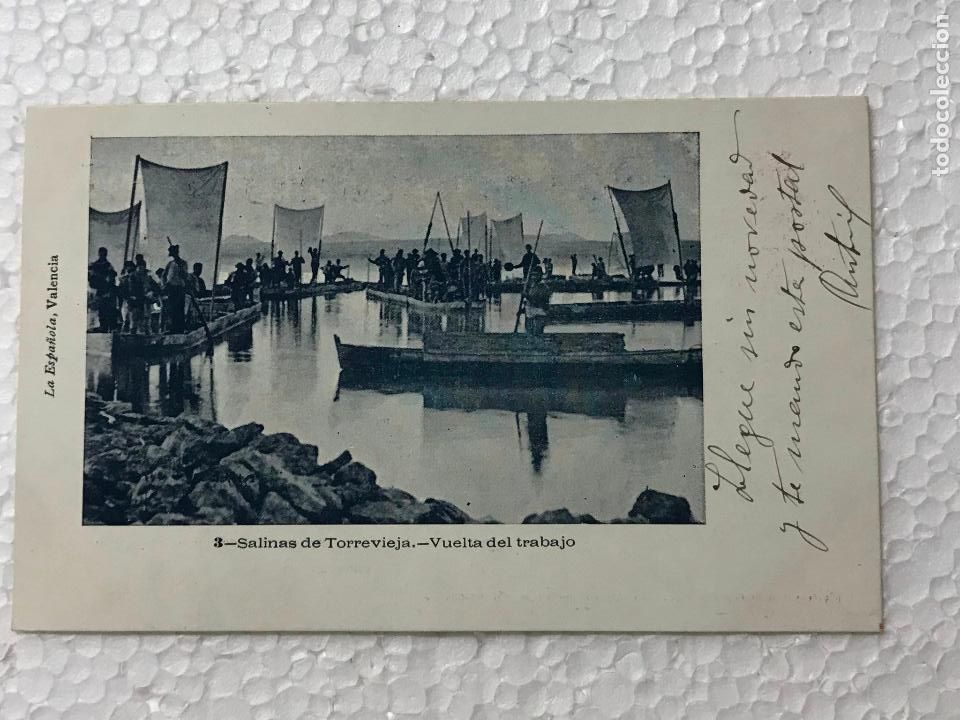 La Española, Valencia
3—Salinas de Torrevieja.—Vuelta del trabajo
Llegue sin novedad
y te mando esta postal
todocoleccion